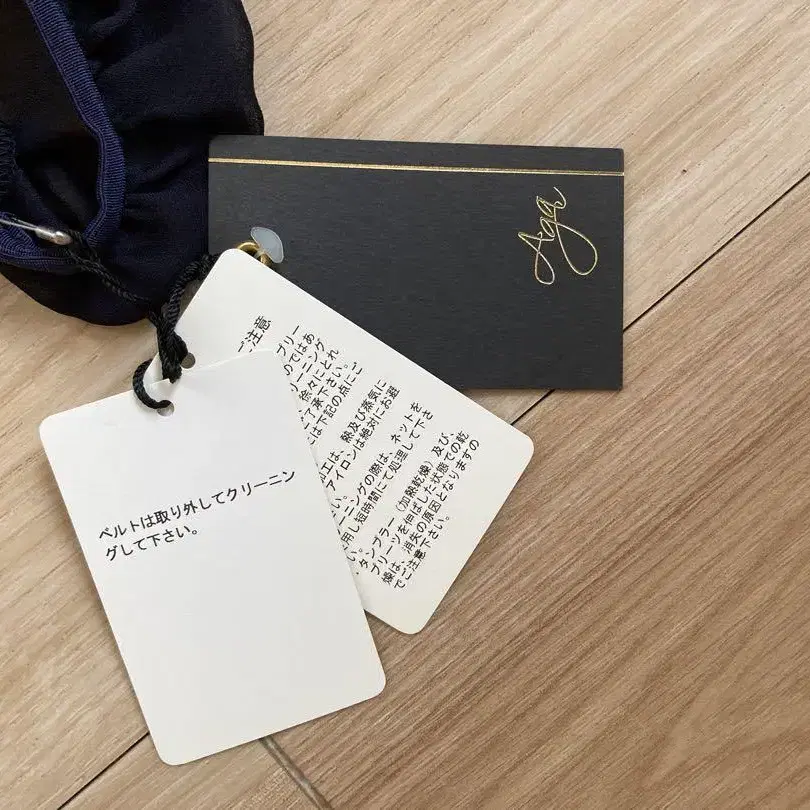 Aga
ご注意
プリー
のではあ
リーニング
徐々にとれ
了承下さい。
は下記の点にご
工は、熱及び蒸気に
アイロンは絶対にお避
い。
ーニングの際は、ネットを
用し短時間にて処理して下さ
い。
・タンブラー（加熱乾燥）及び、
プリーツを伸ばした状態での乾
燥は、消失の原因となりますの
でご注意下さい。
ベルトは取り外してクリーニン
グして下さい。